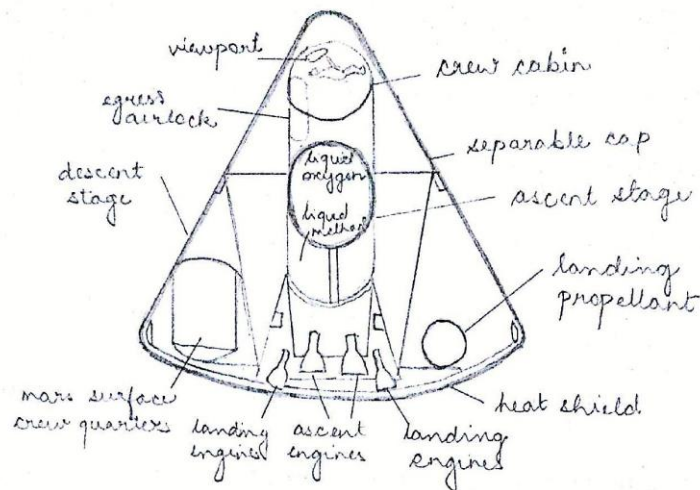 viewport
crew cabin
egress
airlock
separable cap
descent
stage
liquid
oxygen
ascent stage
liquid
methane
landing
propellant
mars surface
crew quarters
landing
engines
ascent
engines
landing
engines
heat shield